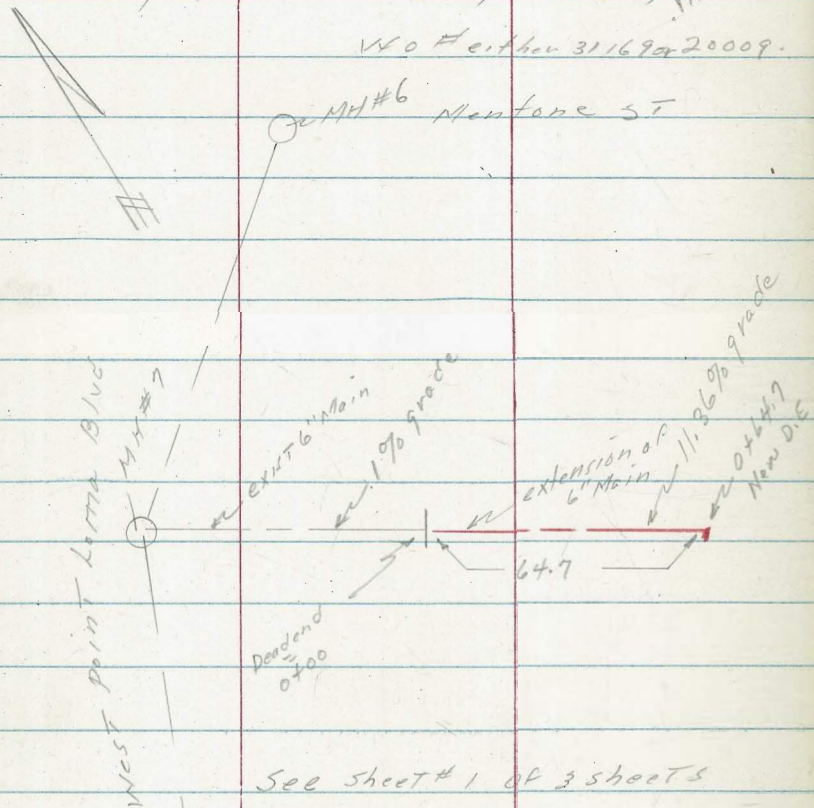 WO # either 31169 or 20009.
MH #6
Mentone ST
West Point Loma Blvd
MH #7
exist 6" Main
.1% grade
extension of
6" Main
11.36% grade
0+64.7
New D.E
64.7
Deadend
=
0+00
See sheet # 1 of 3 sheets